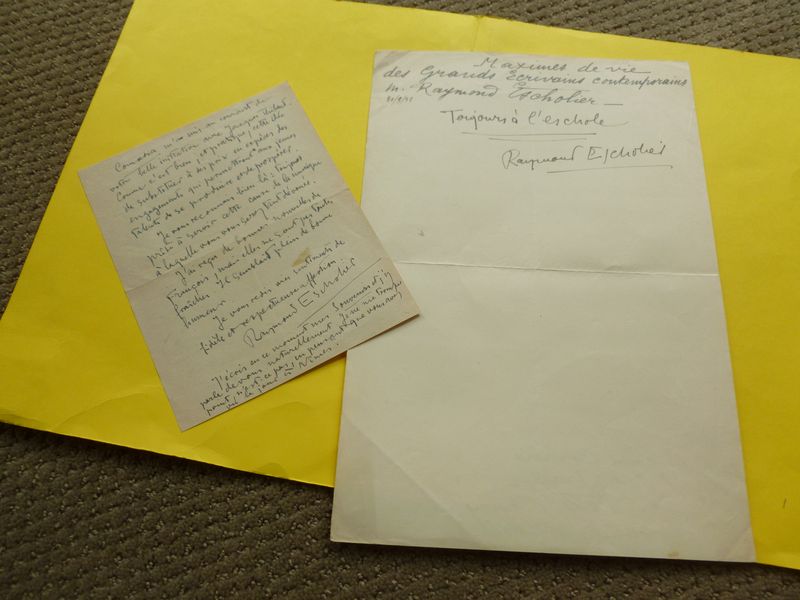 Maximes de vie
des Grands Écrivains contemporains
M. Raymond Escholier —
Toujours à l'eschole
Raymond Escholier
m'a mis au courant de
votre belle initiative avec Jacques
Comme c'est bien, et pratique, cette idée
de substituer à des prix en espèces des
engagements qui permettront aux jeunes
talents de se produire et de prospérer.
Je vous reconnais bien là : toujours
prête à servir cette cause de la musique
à laquelle vous vous
J'ai reçu de bonnes nouvelles de
François, mais elles ne sont pas toutes
fraîches. Il semblait plein de bonne
humeur.
Je vous redis mes sentiments de
fidèle et respectueuse affection
Raymond Escholier
J'écris en ce moment mes Souvenirs et j'y
parle de vous naturellement. Je ne me trompe
point, n'est-ce pas, en pensant que vous
joué à Nîmes.